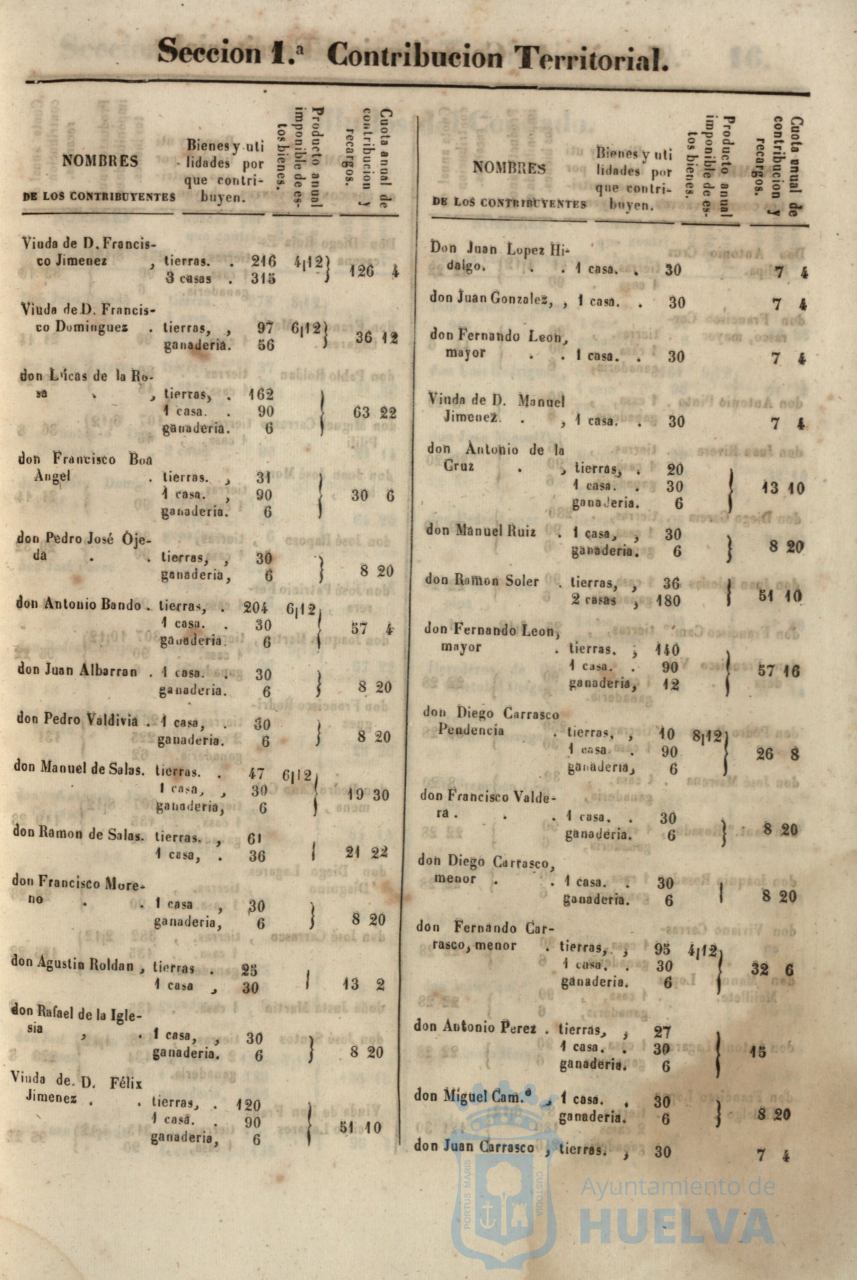 Seccion 1.ª Contribucion Territorial.
NOMBRES
DE LOS CONTRIBUYENTES
Bienes y uti
lidades por
que contri-
buyen.
Producto anual
imponible de es-
tos bienes.
Cuota anual de
contribucion y
recargos.
Viuda de D. Francis-
co Jimenez , tierras. . 216 4,12
3 casas . 315 } 126 4
Viuda de D. Francis-
co Dominguez . tierras, , 97 6,12
ganaderia. 56 } 36 12
don Lucas de la Ro-
sa , , tierras, . 162
1 casa. . 90 } 63 22
ganaderia. 6
don Francisco Boa
Angel . tierras. , 31
1 casa. , 90 } 30 6
ganaderia. 6
don Pedro José Oje-
da . . tierras, , 30
ganaderia, 6 } 8 20
don Antonio Bando . tierras, . 204 6,12
1 casa. . 30 } 57 4
ganaderia. 6
don Juan Albarran . 1 casa. . 30
ganaderia. 6 } 8 20
don Pedro Valdivia . 1 casa, . 30
ganaderia. 6 } 8 20
don Manuel de Salas. tierras. . 47 6,12
1 casa, , 30 } 19 30
ganaderia, 6
don Ramon de Salas. tierras. , 61
1 casa, . 36 } 21 22
don Francisco More-
no . . 1 casa , 30
ganaderia, 6 } 8 20
don Agustin Roldan , tierras . 25
1 casa , 30 } 13 2
don Rafael de la Igle-
sia , . 1 casa, , 30
ganaderia. 6 } 8 20
Viuda de D. Félix
Jimenez . . tierras, . 120
1 casa. . 90 } 51 10
ganaderia, 6
NOMBRES
DE LOS CONTRIBUYENTES
Bienes y uti
lidades por
que contri-
buyen.
Producto anual
imponible de es-
tos bienes.
Cuota anual de
contribucion y
recargos.
Don Juan Lopez Hi-
dalgo. . . 1 casa. . 30 7 4
don Juan Gonzalez, , 1 casa. . 30 7 4
don Fernando Leon,
mayor . . 1 casa. . 30 7 4
Viuda de D. Manuel
Jimenez. . , 1 casa. . 30 7 4
don Antonio de la
Cruz . , tierras, . 20
1 casa. . 30 } 13 10
ganaderia. 6
don Manuel Ruiz . 1 casa, , 30
ganaderia. 6 } 8 20
don Ramon Soler . tierras, , 36
2 casas , 180 } 51 10
don Fernando Leon,
mayor . tierras. , 140
1 casa. . 90 } 57 16
ganaderia, 12
don Diego Carrasco
Pendencia . tierras, , 10 8,12
1 casa . 90 } 26 8
ganaderia, 6
don Francisco Valde-
ra . . . 1 casa. . 30
ganaderia. 6 } 8 20
don Diego Carrasco,
menor . . 1 casa. . 30
ganaderia. 6 } 8 20
don Fernando Car-
rasco, menor . tierras, , 95 4,12
1 casa. . 30 } 32 6
ganaderia. 6
don Antonio Perez . tierras, , 27
1 casa. . 30 } 15
ganaderia. 6
don Miguel Cam.º , 1 casa. . 30
ganaderia. 6 } 8 20
don Juan Carrasco , tierras. , 30 7 4
PORTUS MARIS
CUSTODIA
Ayuntamiento de
HUELVA